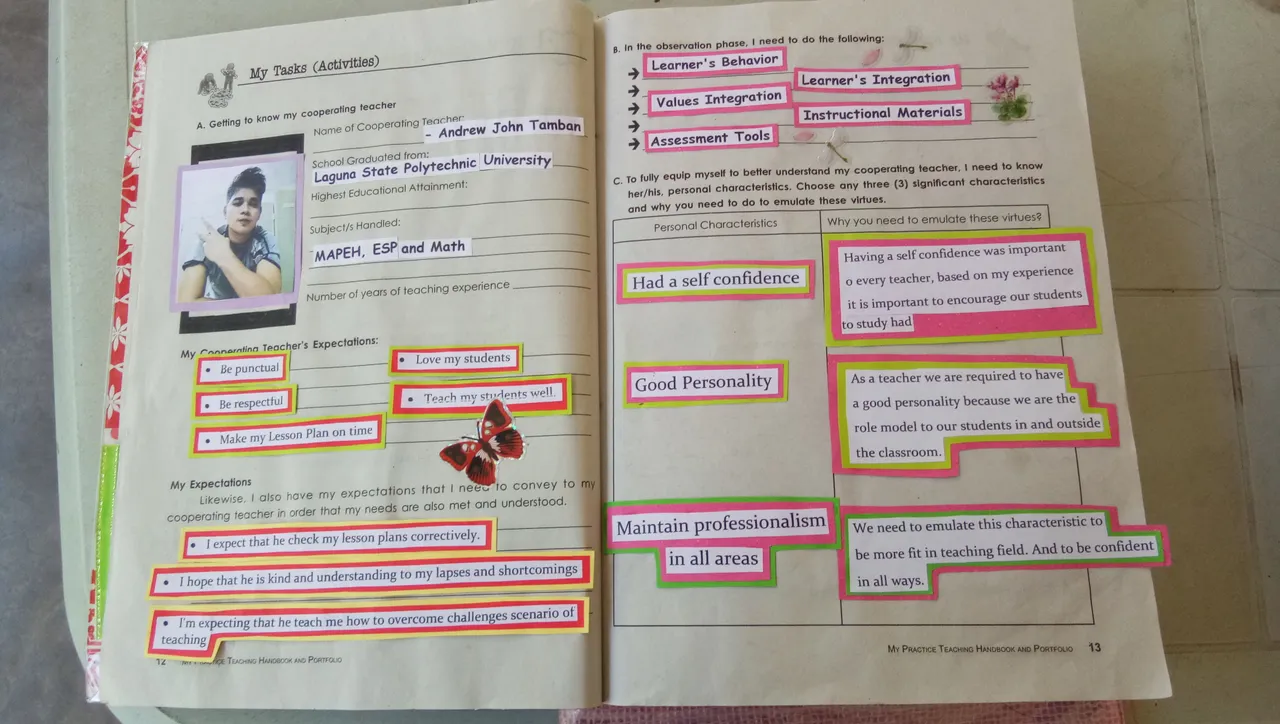 My Tasks (Activities)
A. Getting to know my cooperating teacher
Name of Cooperating Teacher:
- Andrew John Tamban
School Graduated from:
Laguna State Polytechnic University
Highest Educational Attainment:
Subject/s Handled:
MAPEH, ESP and Math
Number of years of teaching experience
My Cooperating Teacher's Expectations:
• Be punctual
• Love my students
• Be respectful
• Teach my students well.
• Make my Lesson Plan on time
My Expectations
Likewise, I also have my expectations that I need to convey to my
cooperating teacher in order that my needs are also met and understood.
• I expect that he check my lesson plans correctively.
• I hope that he is kind and understanding to my lapses and shortcomings
• I'm expecting that he teach me how to overcome challenges scenario of
teaching
12 My Practice Teaching Handbook and Portfolio
B. In the observation phase, I need to do the following:
Learner's Behavior
Learner's Integration
Values Integration
Instructional Materials
Assessment Tools
C. To fully equip myself to better understand my cooperating teacher, I need to know
her/his, personal characteristics. Choose any three (3) significant characteristics
and why you need to do to emulate these virtues.
Personal Characteristics
Why you need to emulate these virtues?
Had a self confidence
Having a self confidence was important
o every teacher, based on my experience
it is important to encourage our students
to study had
Good Personality
As a teacher we are required to have
a good personality because we are the
role model to our students in and outside
the classroom.
Maintain professionalism
in all areas
We need to emulate this characteristic to
be more fit in teaching field. And to be confident
in all ways.
My Practice Teaching Handbook and Portfolio 13